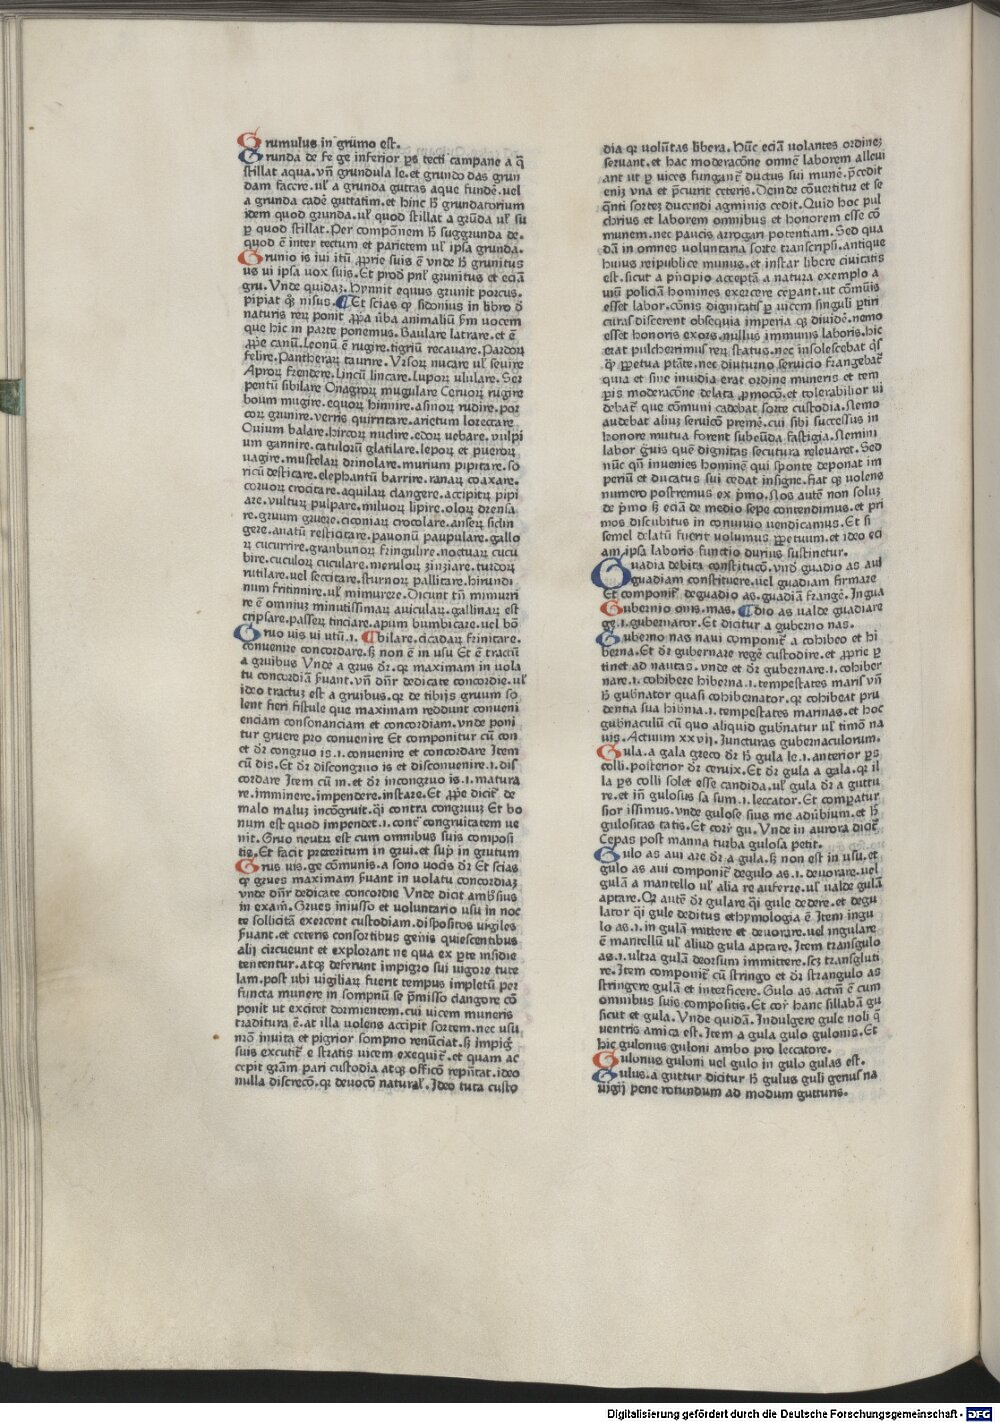 Grumulus in grūmo est.
Grunda de fe ge inferior ꝑs tecti campane a q̄
stillat aqua. vn̄ grundula le. et grundo das grun
dam facere. ul᷑ a grunda guttas aque fundē. uel
a grunda cadē guttatim. et hinc h̄ grundatorium
idem quod grunda. ul᷑ quod stillat a grūda ul᷑ su
ꝑ quod stillat. Per componem h̄ suggrunda de.
quod ē inter tectum et parietem ul᷑ ipsa grunda.
Grunio is iui itū ꝓprie suis ē vnde h̄ grunitus
us ui ipsa uox suis. Et prod pnl᷑ grunitus et eciā
gru. Vnde quidaꝫ. Hynnit equus grunit porcus.
pipiat qꝫ nisus. ¶Et scias ꝙ sidonius in libro ð
naturis reꝝ ponit ꝓpa ūba animaliū ẜm uocem
que hic in parte ponemus. Baulare latrare. et ē
ꝓpe canū. Leonū ē rugire. tigriū recauare. Pardoꝝ
felire. Pantheraꝝ taurire. Vrsoꝝ nucare ul᷑ seuire
Aproꝝ frendere. Lincū lincare. Lupoꝝ ululare. Ser
pentū sibilare Onagroꝝ mugulare Ceruoꝝ rugire
boum mugire. equoꝝ hinnire. asinoꝝ rudire. por
coꝝ grunire. verris quirritare. arietum lorectare
Ouium balare. hircoꝝ mutire. edoꝝ uebare. vulpi
um gannire. catuloꝝ glatilare. lepoꝝ et pueroꝝ
uagire. mustelaꝝ drinolare. murium pipitare. so
ricū desticare. elephantū barrire. ranaꝝ coaxare.
coruoꝝ crocitare. aquilaꝝ clangere. accipitꝝ pipi
are. vultuꝝ pulpare. miluoꝝ lipire. oloꝝ drensa
re. gruum gruere. ciconiaꝝ crocolare. anseꝝ siclin
gere. anatū resticitare. pauonū paupulare. gallo
ꝝ cucurrire. granbunoꝝ fringulire. noctuaꝝ cucu
bire. cuculoꝝ cuculare. meruloꝝ zinziare. turdoꝝ
rutilare. uel seccitare. sturnoꝝ pallitare. hirundi
num fritinnire. ul᷑ mimurere. Dicunt tn̄ mimurri
re ē omniuꝫ minutissimaꝝ auiculaꝝ. gallinaꝝ est
cripsare. passeꝝ tinciare. apum bumbicare. uel bō
bilare. cicadaꝝ frinitare.
Gruo uis ui utū .i. ¶
conuenire concordare. ẜ non ē in usu Et ē tractū
a gruibus Vnde a grus dr̄. qꝛ maximam in uola
tu concordiā ẜuant. vn̄ dn̄r dedicate concordie. ul᷑
ideo tractuꝫ est a gruibus. qꝛ de tibijs gruum so
lent fieri fistule que maximam reddunt conueni
enciam consonanciam et concordiam. vnde poni
tur gruere pro conuenire Et componitur cū con
et dr̄ congruo is .i. conuenire et concordare Item
cū dis. Et dr̄ discongruo is et disconuenire .i. dis
cordare Item cū m. et dr̄ incongruo is .i. matura
re. imminere. impendere. instare. Et ꝓpe dicit᷑ de
malo maluꝫ incōgruit. qͥ contra congruuꝫ Et bo
num est quod impendet .i. cont᷑ congruitatem ue
nit. Gruo neutꝝ est cum omnibus suis composi
tis. Et facit preteritum in grui. et sup̄ in grutum
Grus uis. ge cōmunis. a sono uocis dr̄ Et scias
ꝙ grues maximam ẜuant in uolatu concordiaꝫ
vnde dn̄r dedicate concordie Vnde dicit ambr̄sius
in exam̄. Grues iniusso et uoluntario usu in noc
te sollicitā exercent custodiam. dispositos uigiles
ẜuant. et ceteris consortibus genis quiescentibus
alij circueunt et explorant ne qua ex ꝑte insidie
tententur. atqꝫ deferunt impigro sui uigore tute
lam. post ubi uigiliaꝝ fuerit tempus impletū per
functa munere in sompnū se p̄misso clangore cō
ponit ut excitet dormientem. cui uicem muneris
traditura ē. at illa uolens accipit sortem. nec usu
nr̄o inuita et pigrior sompno renūciat. ẜ impigͤ
suis excutit᷑ e stratis uicem exequit᷑. et quam ac
cepit gr̄am pari custodia atqꝫ officō rep̄ntat. ideo
nulla discrecō. qꝛ deuocō natural᷑. Ideo tuta custo
dia qꝛ uolūtas libera. Hūc eciā uolantes ordineꝫ
seruant. et hac moderacōne omnē laborem alleui
ant ut ꝑ uices fungant᷑ ductus sui munē. p̄cedit
eniꝫ vna et p̄currit ceteris. Deinde cōuertitur et se
q̄nti sorteꝫ ducendi agminis cedit. Quid hoc pul
chrius et laborem omnibus et honorem esse cō
munem. nec paucis arrogari potentiam. Sed qua
dā in omnes voluntaria sorte transcripsi. antique
huius reipublice munus. et instar libere ciuitatis
est. sicut a pͥncipio acceptā a natura exemplo a
uiū policiā homines exercere ceꝑant. ut cōmūis
esset labor. cōnis dignitatis ꝑ uicem singuli ꝑtiri
curas discerent obsequia imperia qꝫ diuidē. nemo
esset honoris exors. nullus immunis laboris. hic
erat pulcherimus reꝝ status. nec insolescebat qͥs
qꝫ ꝓpetua ptāte. nec diuturno seruicio frangebat᷑
quia et sine inuidia erat ordine muneris et tem
ꝑis moderacōne delata ꝓmocō. et tolerabilior ui
debat᷑ que cōmuni cadebat sorte custodia. Nemo
audebat aliuꝫ seruicō premē. cui sibi successus in
honore mutua forent subeūda fastigia. Nemini
labor gͣuis quē dignitas secutura releuaret. Sed
nūc qn̄ inuenies hominē qui sponte deponat im
periū et ducatus sui cedat insigne. fiat qꝫ uolens
numero postremus ex p̄mo. Nos autē non soluꝫ
de p̄mo ẜ eciā de medio sepe contendimus. et pri
mos discubitus in conuiuio uendicamus. Et si
semel delatū fuerit volumus ꝑpetuum. et ideo eci
am ipsa laboris functio durius sustinetur.
Guadia debita constitucō. vnd̄ guadio as aui
guadiam constituere. uel guadiam firmare
Et componit᷑ deguadio as. guadiā frangē. In gua
dio as ualde guadiare
Gubernio onis. mas. ¶
ge .i. gubernator. Et dicitur a guberno nas.
Guberno nas naui componit᷑ a cohibeo et hi
berna. Et dr̄ gubernare regē custodire. et ꝓprie ꝑ
tinet ad nautas. vnde et dr̄ gubernare .i. cohiber
nare .i. cohibere hiberna .i. tempestates maris vn̄
h̄ gub̄nator quasi cohibernator. qꝛ cohibeat pru
dentia sua hib̄nia .i. tempestates marinas. et hoc
gub̄naculū cū quo aliquid gub̄natur ul᷑ timō na
uis. Actuum xxvij. Iuncturas gubernaculorum.
Gula. a gala greco dr̄ h̄ gula le .i. anterior ꝑs
colli. posterior dr̄ ceruix. Et dr̄ gula a gala. qꝛ il
la ꝑs colli solet esse candida. ul᷑ gula dr̄ a guttu
re. et in̄ gulosus sa sum .i. leccator. Et comꝑatur
sior issimus. vnde gulose sius me adūbium. et h̄
gulositas tatis. Et corꝛ̄ gu. Vnde in aurora dicit᷑
Cepas post manna turba gulosa petit.
Gulo as aui are dr̄ a gula. ẜ non est in usu. et
gulo as aui componit᷑ degulo as .i. deuorare. uel
gulā a mantello ul᷑ alia re auferre. ul᷑ ualde gulā
aptare. Qꝛ autē dr̄ gulare qͥ gule dedere. et degu
lator qͥ gule deditus ethymologia ē Item ingu
lo as .i. in gulā mittere et deuorare. uel ingulare
ē mantellū ul᷑ aliud gula aptare. Item transgulo
as .i. ultra gulā deorsum immittere. scꝫ transgluti
re. Item componit᷑ cū stringo et dr̄ strangulo as
stringere gulā et interficere. Gulo as actm̄ ē cum
omnibus suis compositis. Et corꝛ̄ hanc sillabā gu
sicut et gula. Vnde quidā. Indulgere gule noli q̄
uentris amica est. Item a gula gulo gulonis. Et
hic gulonus guloni ambo pro leccatore.
Gulonus guloni uel gulo in gulo gulas est.
Gulus. a guttur dicitur h̄ gulus guli genus na
uigij pene rotundum ad modum gutturis.
Digitalisierung gefördert durch die Deutsche Forschungsgemeinschaft - DFG